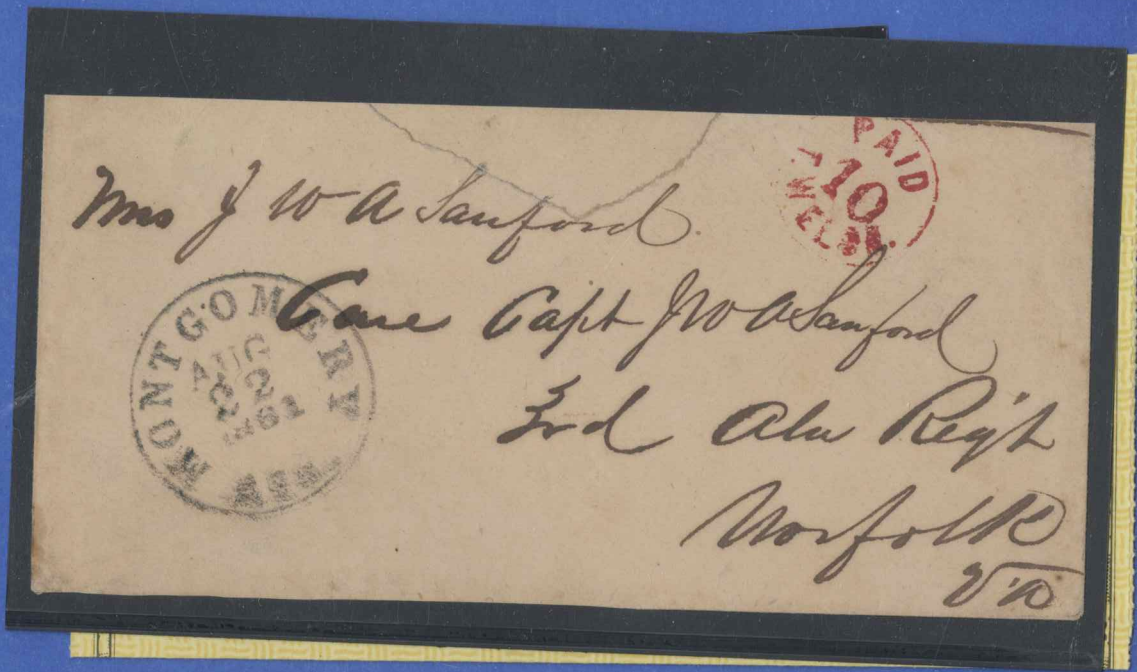 PAID
10
WELSH.
Mrs J W A Sanford.
Care Capt J W A Sanford
3rd Ala Reg't
Norfolk
Va
MONTGOMERY
AUG
22
1861